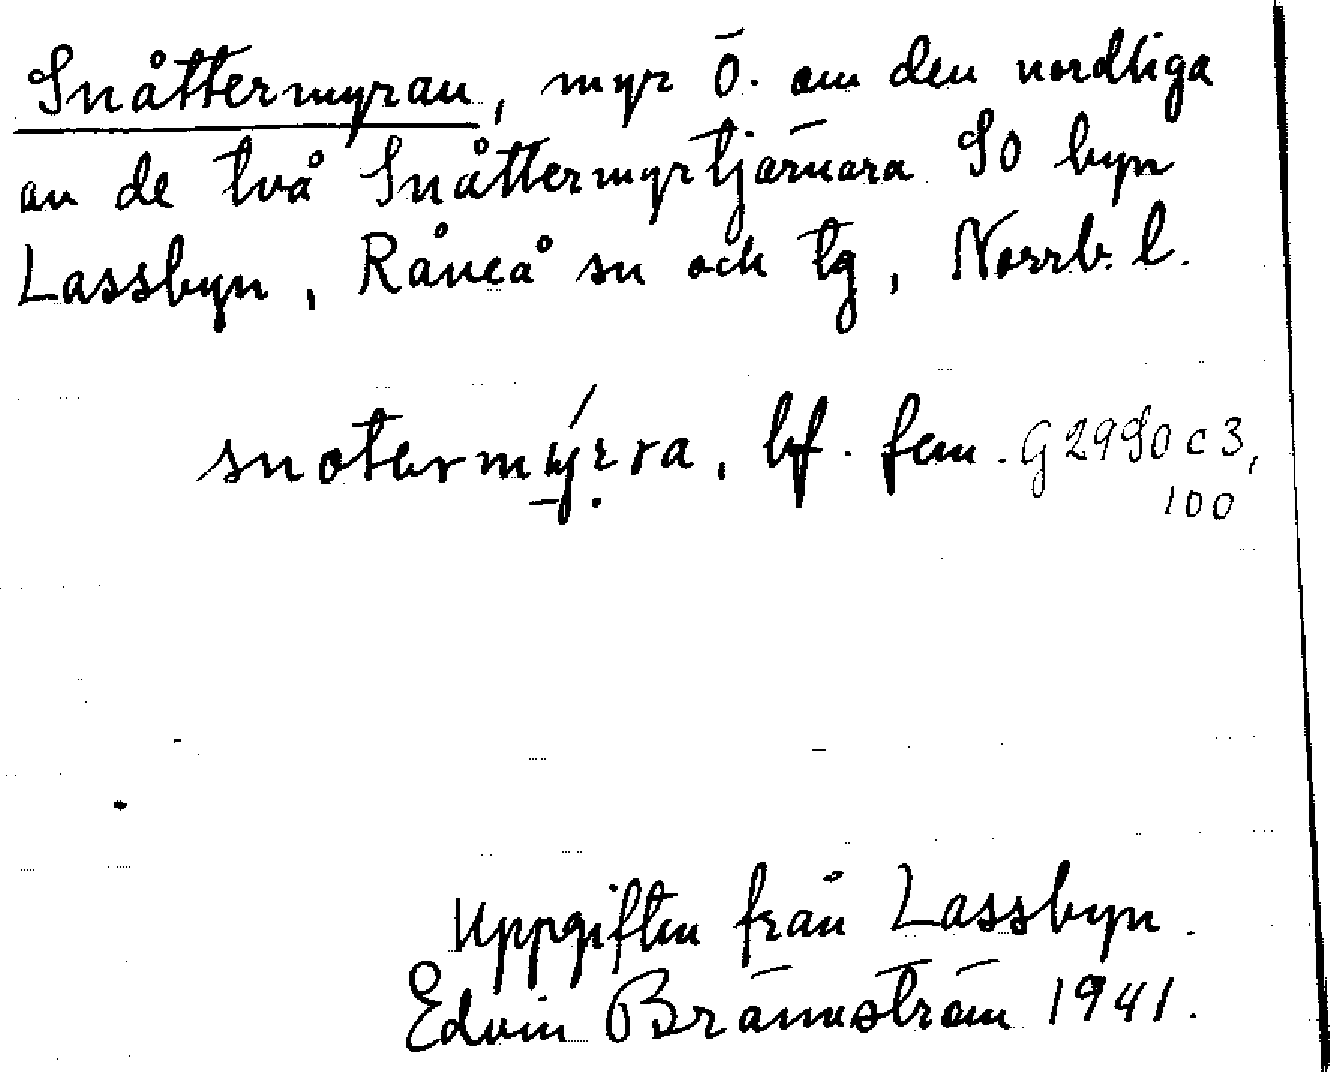 Snåttermyran, myr Ö. om den nordliga
av de två Snåttermyrtjärnara SO byn
Lassbyn, Råneå sn och tg, Norrb. l.
snotermýrra, bf. fem. G 2990 c 3,
100
Uppgiften från Lassbyn.
Edvin Brännström 1941.